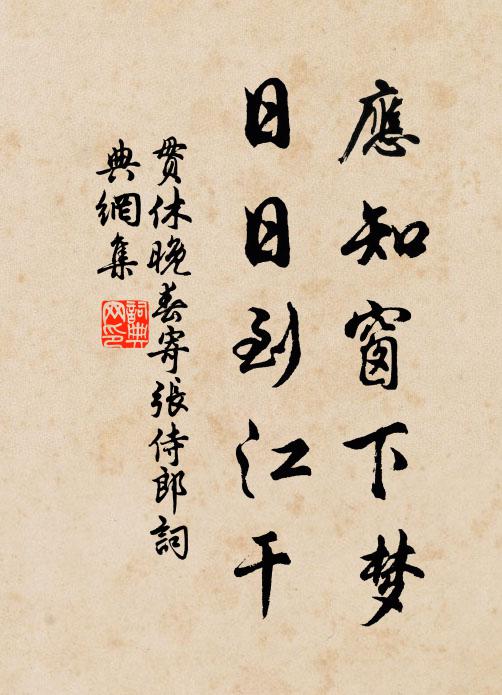 應知窗下梦
日日到江干
贯休晚春寄張侍郎詞
典網集
詞典网印